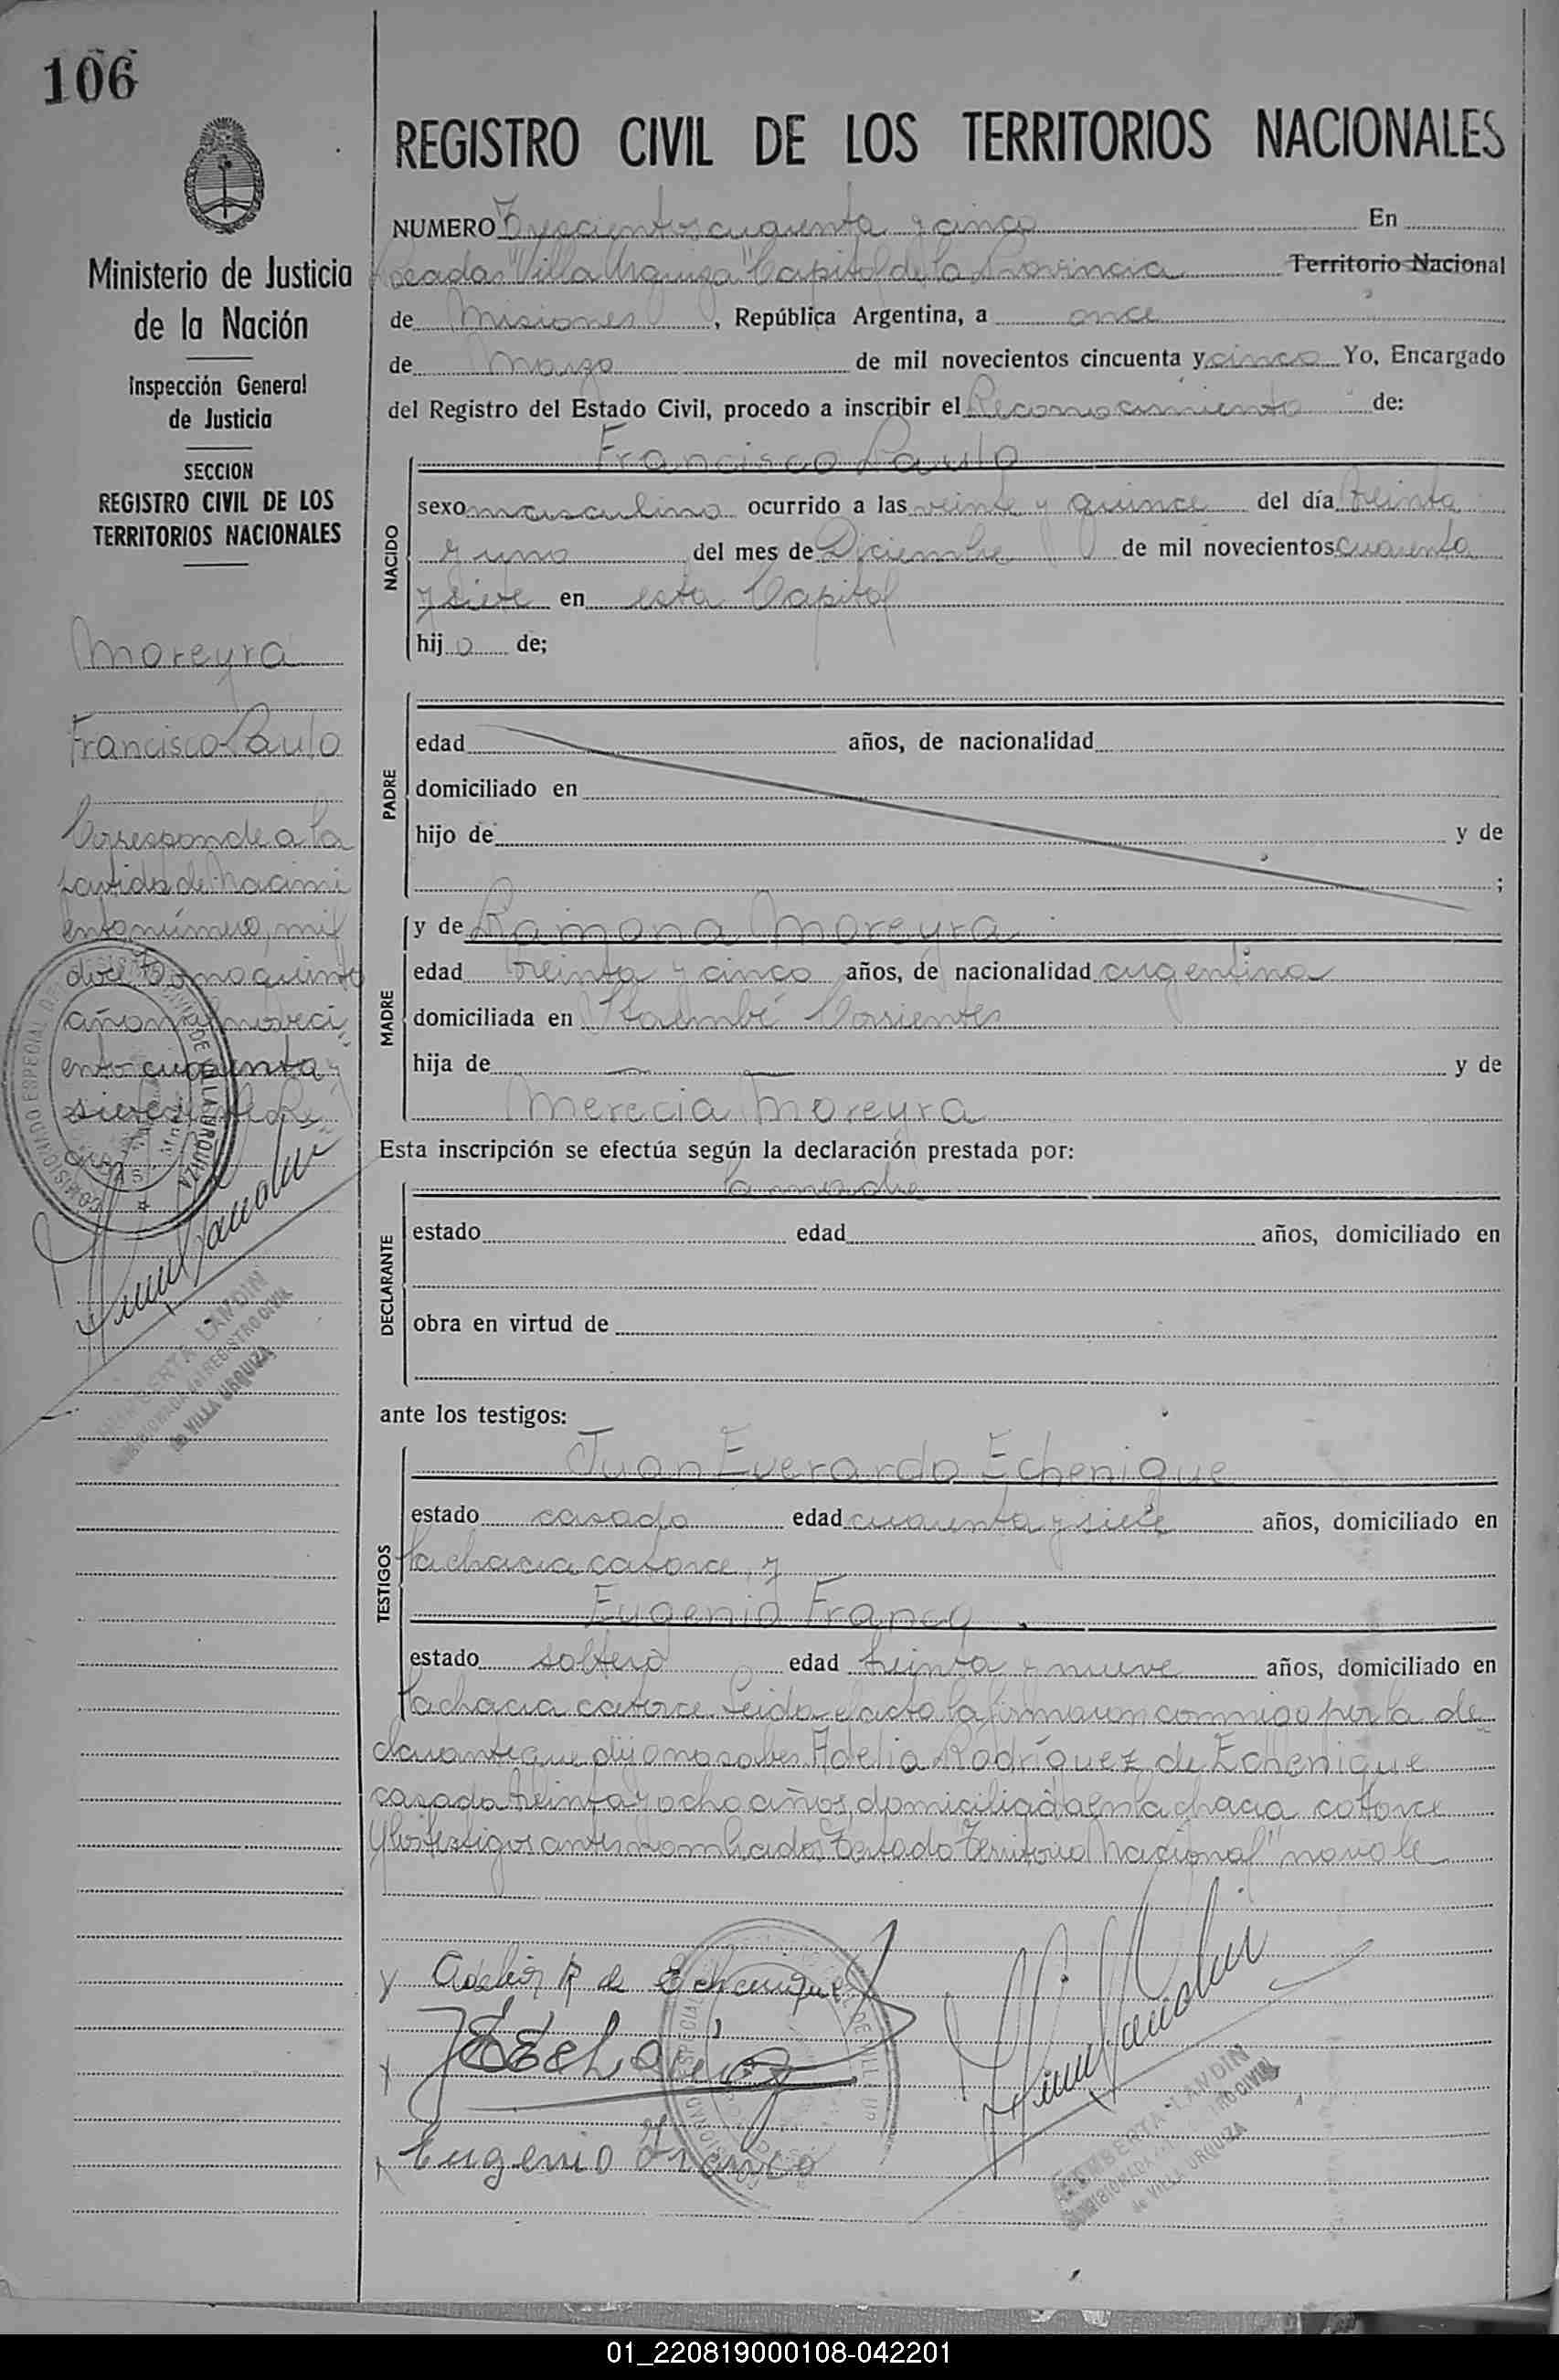 106
Ministerio de Justicia
de la Nación
Inspección General
de Justicia
SECCION
REGISTRO CIVIL DE LOS
TERRITORIOS NACIONALES
Moreyra
Francisco Paulo
Corresponde a la
partida de Nacimi
ento número, mil
doce Tomo quinto
año mil noveci
ento cuarenta y
siete
COMISIONADO ESPECIAL DE VILLA URQUIZA
LANDIN
REGISTRO CIVIL
de VILLA URQUIZA
REGISTRO CIVIL DE LOS TERRITORIOS NACIONALES
NUMERO Trescientos cuarenta y cinco En
"Villa Urquiza" Capital de la Provincia Territorio Nacional
de Misiones, República Argentina, a once
de Marzo de mil novecientos cincuenta y cinco Yo, Encargado
del Registro del Estado Civil, procedo a inscribir el Reconocimiento de:
Francisco Paulo
NACIDO
sexo masculino ocurrido a las veinte y quince del día treinta
y uno del mes de Diciembre de mil novecientos cuarenta
y siete en esta Capital
hijo de;
PADRE
edad años, de nacionalidad
domiciliado en
hijo de y de
;
MADRE
y de Ramona Moreyra
edad treinta y cinco años, de nacionalidad argentina
domiciliada en Itaimbé Corrientes
hija de — — y de
Merecia Moreyra
Esta inscripción se efectúa según la declaración prestada por:
la madre
DECLARANTE
estado edad años, domiciliado en
obra en virtud de
ante los testigos:
TESTIGOS
Juan Everardo Echenique
estado casado edad cuarenta y siete años, domiciliado en
la chacra catorce, y
Eugenio Franco
estado soltero edad treinta y nueve años, domiciliado en
la chacra catorce. Leida el acta la firmaron conmigo por la de
clarante que dijo no saber Adelia Rodríguez de Echenique
casada treinta y ocho años, domiciliada en la chacra catorce
y los testigos antes nombrados Testado "Territorio Nacional" no vale
Adelia R de Echenique
Eugenio Franco
LANDIN
de VILLA URQUIZA
01_220819000108-042201